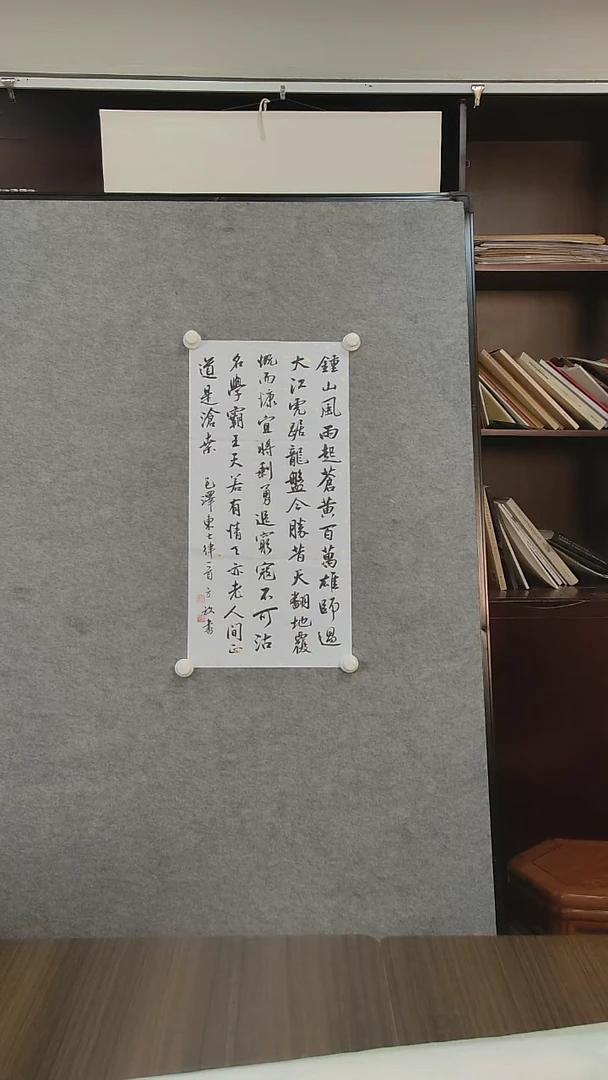 鍾山風雨起蒼黃百萬雄師過
大江虎踞龍盤今勝昔天翻地覆
慨而慷宜將剩勇追窮寇不可沽
名學霸王天若有情天亦老人間正
道是滄桑
毛澤東七律一首書